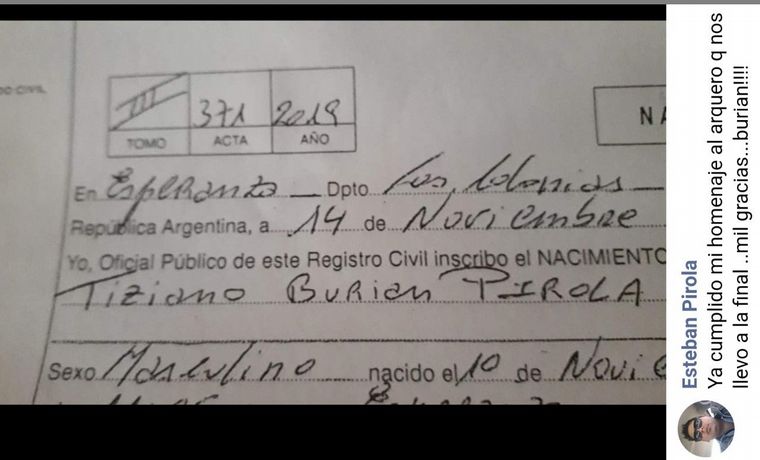 DO CIVIL
III 371 2019
TOMO ACTA AÑO
NA
En Esperanza Dpto. Las Colonias
República Argentina, a 14 de Noviembre
Yo, Oficial Público de este Registro Civil inscribo el NACIMIENTO
Tiziano Burian PIROLA
Sexo Masculino nacido el 10 de Novie
Esteban Pirola
Ya cumplido mi homenaje al arquero q nos
llevo a la final ..mil gracias...burian!!!!